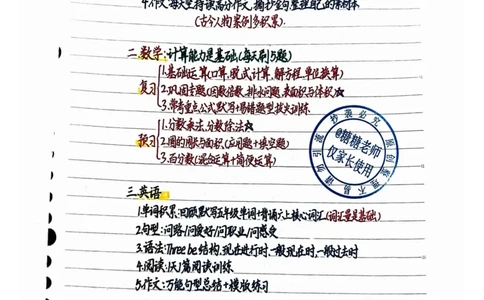 4.作文:每天坚持读高分作文,摘抄金句整理自己的素材本
(古今人物案例多积累).
二.数学:计算能力是基础(每天刷5题)
复习
1.基础运算(口算,脱式计算,解方程,单位换算)
2.巩固专题(因数倍数,排水问题,表面积与体积☆
3.常考重点公式默写+易错题型放大训练
预习
1.分数乘法,分数除法☆
2.圆的周长与面积(应用题+填空题)
3.百分数(混合运算+简便运算)
三.英语
1.单词积累:回顾默写五年级单词+背诵六上核心词汇(词汇量是基础)
2.句型:问路/问爱好/问职业/问感受
3.语法:There be结构,现在进行时,一般现在时,一般过去时
4.阅读:1天1篇阅读训练
5.作文:万能句型总结+模版练习
抄袭必究
@糖糖老师
仅家长使用
原创整理不易请勿引流